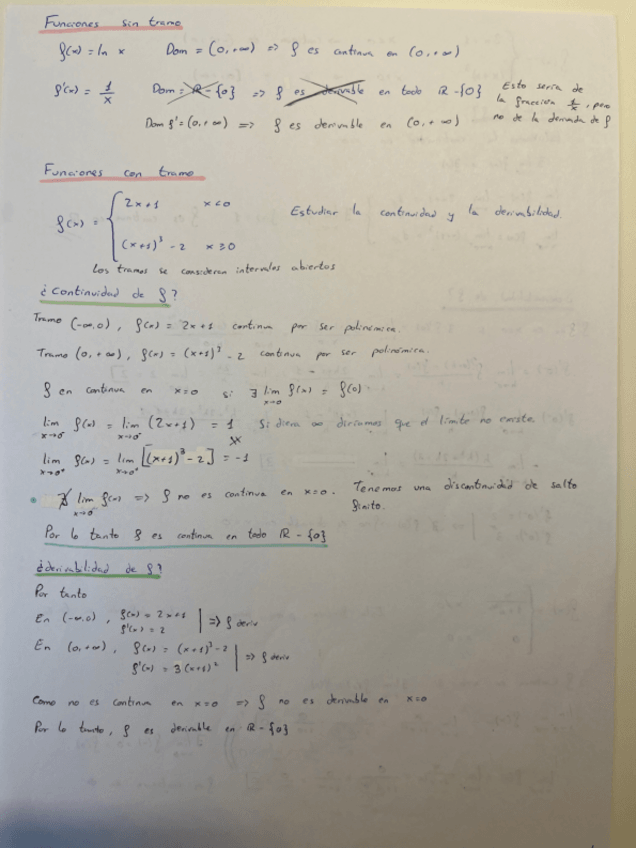 Funciones sin tramo
f(x) = ln x Dom = (0, +∞) => f es continua en (0, +∞)
f'(x) = 1/x Dom = R - {0} => f es derivable en todo R - {0} Esto sería de la fracción 1/x, pero no de la derivada de f
Dom f' = (0, +∞) => f es derivable en (0, +∞)
Funciones con tramo
f(x) = { 2x+1 x<0
(x+1)³ - 2 x≥0
Estudiar la continuidad y la derivabilidad.
Los tramos se consideran intervalos abiertos
¿Continuidad de f?
Tramo (-∞,0), f(x) = 2x+1 continua por ser polinómica.
Tramo (0,+∞), f(x) = (x+1)³ - 2 continua por ser polinómica.
f en continua en x=0 si ∃ lim x→0 f(x) = f(0)
lim x→0⁻ f(x) = lim x→0⁻ (2x+1) = 1 Si diera ∞ diríamos que el límite no existe
lim x→0⁺ f(x) = lim x→0⁺ [(x+1)³ - 2] = -1
∄ lim x→0 f(x) => f no es continua en x=0. Tenemos una discontinuidad de salto finito.
Por lo tanto f es continua en todo R - {0}
¿derivabilidad de f?
Por tanto
En (-∞,0), f(x) = 2x+1
f'(x) = 2 | => f deriv
En (0,+∞), f(x) = (x+1)³ - 2
f'(x) = 3(x+1)² | => f deriv
Como no es continua en x=0 => f no es derivable en x=0
Por lo tanto, f es derivable en R - {0}